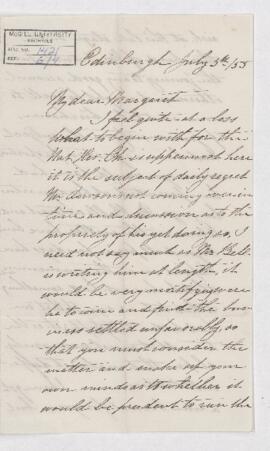 McGILL UNIVERSITY
ARCHIVES
ACC. NO. 1421
REF.
Edinburgh July 5th/55
My dear Margaret
I feel quite at a loss
what to begin with for this
that
here
it is the subject of daily regret
Mr. Dawson's not coming over in
time and discussion as to the
propriety of his yet doing so, I
need not say much as Mr. Bell
is writing him at length, it
would be very mortifying were
he to come and find the bus-
iness settled unfavorably, so
that you must consider the
matter and make up your
own minds as to whether it
would be prudent to run the